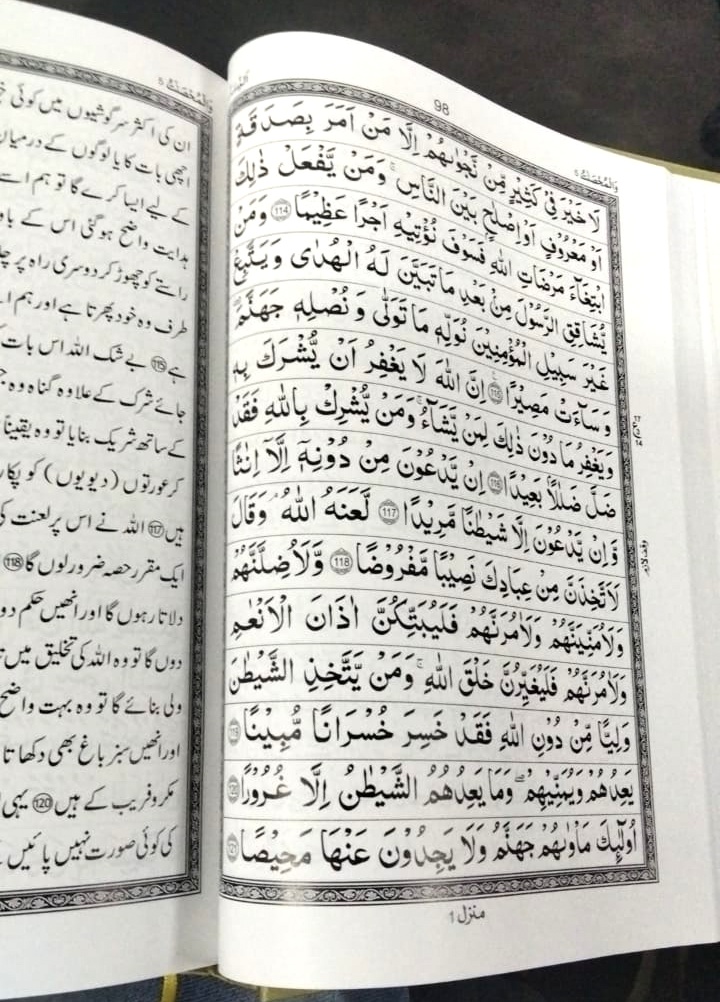 98
وَالْمُحْصَنٰتُ 5
لَا خَيْرَ فِيْ كَثِيْرٍ مِّنْ نَّجْوٰىهُمْ اِلَّا مَنْ اَمَرَ بِصَدَقَةٍ
اَوْ مَعْرُوْفٍ اَوْ اِصْلَاحٍۭ بَيْنَ النَّاسِ ؕ وَمَنْ يَّفْعَلْ ذٰلِكَ
ابْتِغَآءَ مَرْضَاتِ اللّٰهِ فَسَوْفَ نُؤْتِيْهِ اَجْرًا عَظِيْمًا 114 وَمَنْ
يُّشَاقِقِ الرَّسُوْلَ مِنْۢ بَعْدِ مَا تَبَيَّنَ لَهُ الْهُدٰى وَيَتَّبِعْ
غَيْرَ سَبِيْلِ الْمُؤْمِنِيْنَ نُوَلِّهٖ مَا تَوَلّٰى وَنُصْلِهٖ جَهَنَّمَ ؕ
وَسَآءَتْ مَصِيْرًا 115 اِنَّ اللّٰهَ لَا يَغْفِرُ اَنْ يُّشْرَكَ بِهٖ
وَيَغْفِرُ مَا دُوْنَ ذٰلِكَ لِمَنْ يَّشَآءُ ؕ وَمَنْ يُّشْرِكْ بِاللّٰهِ فَقَدْ
ضَلَّ ضَلٰلًاۢ بَعِيْدًا 116 اِنْ يَّدْعُوْنَ مِنْ دُوْنِهٖٓ اِلَّآ اِنٰثًا
وَّاِنْ يَّدْعُوْنَ اِلَّا شَيْطٰنًا مَّرِيْدًا 117 لَّعَنَهُ اللّٰهُ ۘ وَقَالَ
لَاَتَّخِذَنَّ مِنْ عِبَادِكَ نَصِيْبًا مَّفْرُوْضًا 118 وَّلَاُضِلَّنَّهُمْ
وَلَاُمَنِّيَنَّهُمْ وَلَاٰمُرَنَّهُمْ فَلَيُبَتِّكُنَّ اٰذَانَ الْاَنْعٰمِ
وَلَاٰمُرَنَّهُمْ فَلَيُغَيِّرُنَّ خَلْقَ اللّٰهِ ؕ وَمَنْ يَّتَّخِذِ الشَّيْطٰنَ
وَلِيًّا مِّنْ دُوْنِ اللّٰهِ فَقَدْ خَسِرَ خُسْرَانًا مُّبِيْنًا 119
يَعِدُهُمْ وَيُمَنِّيْهِمْ ؕ وَمَا يَعِدُهُمُ الشَّيْطٰنُ اِلَّا غُرُوْرًا 120
اُولٰٓئِكَ مَاْوٰىهُمْ جَهَنَّمُ وَلَا يَجِدُوْنَ عَنْهَا مَحِيْصًا 121
منزل 1
وَالْمُحْصَنٰتُ 5
ان کی اکثر سرگوشیوں میں کوئی
اچھی بات کا یا لوگوں کے درمیان
کے لیے ایسا کرے گا تو ہم اسے
ہدایت واضح ہوگئی اس کے
راستے کو چھوڑ کر دوسری راہ پر
طرف وہ خود پھرتا ہے اور ہم
ہے 115 بے شک اللہ اس بات
جائے شرک کے علاوہ گناہ وہ
کے ساتھ شریک بنایا تو وہ یقیناً
کر عورتوں (دیویوں) کو
ہیں 117 اللہ نے اس پر لعنت کی
ایک مقرر حصہ ضرور لوں گا 118
دلاتا رہوں گا اور انھیں حکم
دوں گا تو وہ اللہ کی تخلیق میں
ولی بنائے گا تو وہ بہت واضح
اور انھیں سبز باغ بھی دکھاتا
مکر و فریب کے ہیں 120 یہی
کی کوئی صورت نہیں پائیں